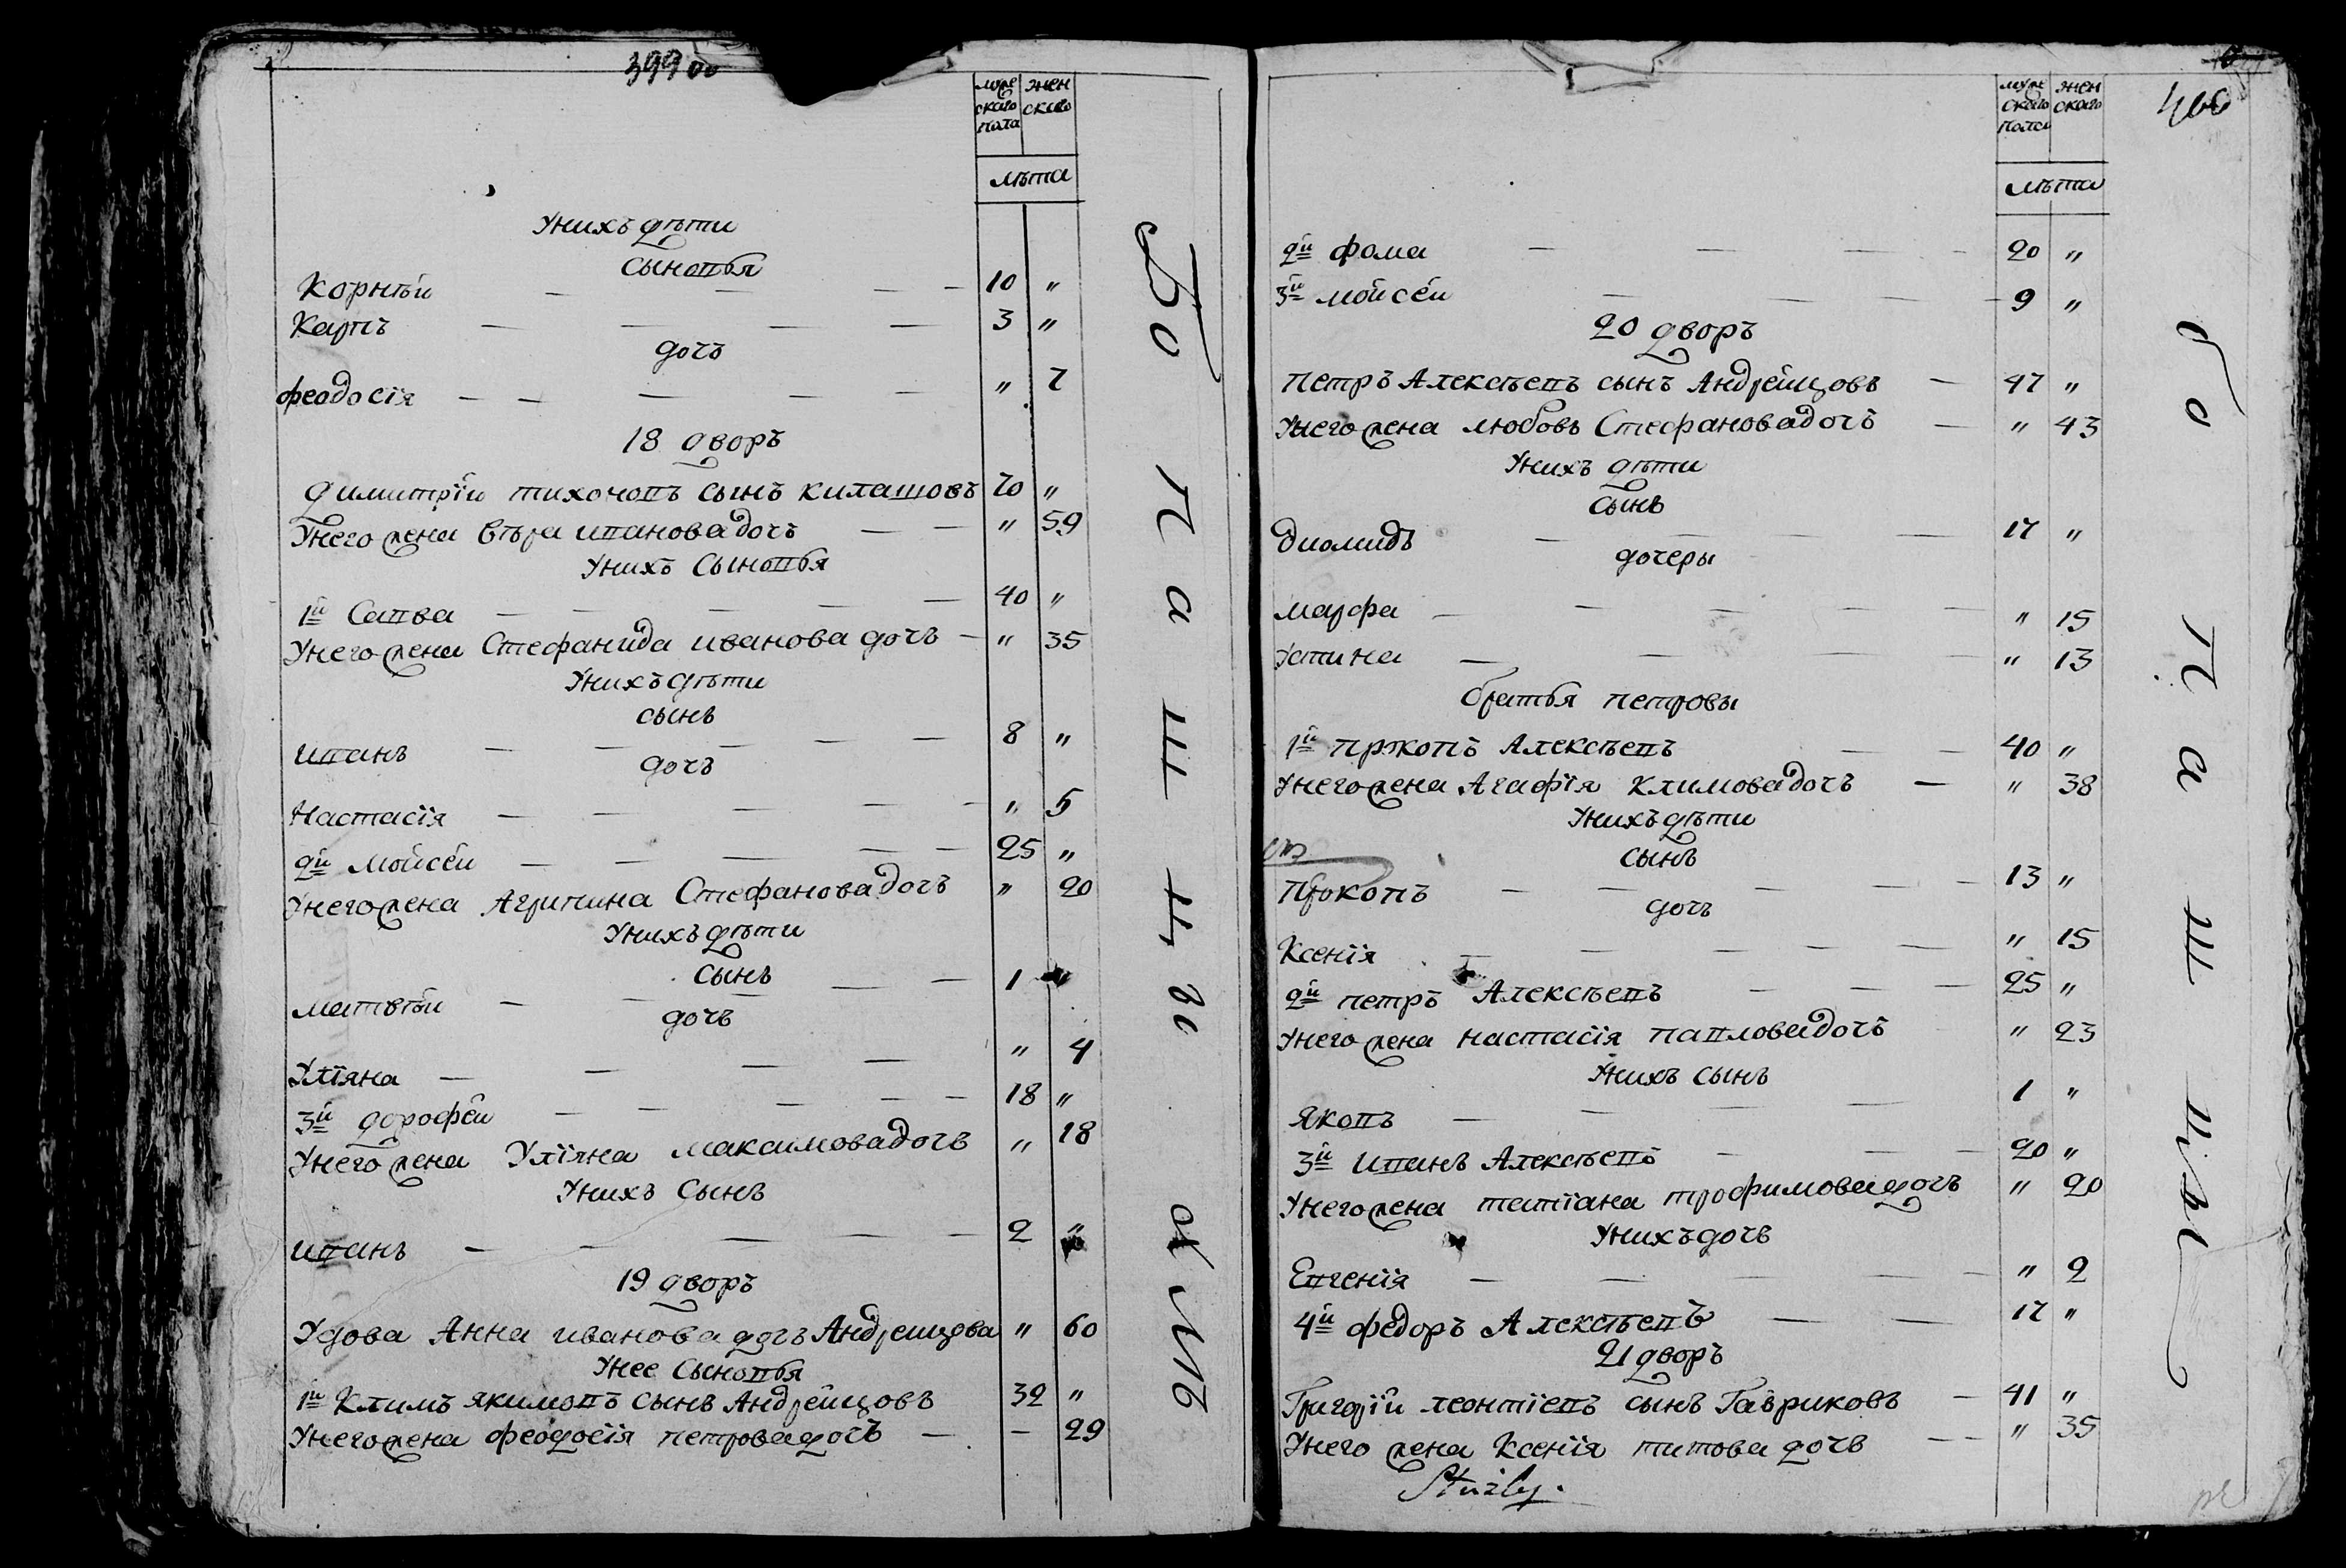 399 об
муже
скаго
пола
жен
скаго
лѣта
У нихъ дѣти
сыновья
Корнѣй — — — — 10 "
Карпъ — — — — 3 "
дочь
Феодосія — — — — — " 7
18 дворъ
Димитрій Тихоновъ сынъ Килашовъ 70 "
У него жена Вѣра Иванова дочь — — " 59
У нихъ Сыновья
1й Савва — — — — — 40 "
У него жена Стефанида Иванова дочь — " 35
У нихъ дѣти
сынъ
Иванъ — — — — — 8 "
дочь
Настасія — — — — — " 5
2й Мойсей — — — — — 25 "
У него жена Агрипина Стефанова дочь " 20
У нихъ дѣти
Сынъ
Матвѣй — — — — — 1 "
дочь
Уліяна — — — — " 4
3й Дорофей — — — — — 18 "
У него жена Уліяна Максимова дочь " 18
У нихъ Сынъ
Иванъ — — — — — 2 "
19 дворъ
Удова Анна Иванова дочь Андреицова " 60
У нее Сыновья
1й Климъ Якимовъ сынъ Андрейцовъ 32 "
У него жена Феодосія Петрова дочь — — 29
муже
скаго
пола
жен
скаго
лѣта
2й Фома — — — — 20 "
3й Мойсей — — — — 9 "
20 дворъ
Петръ Алексѣевъ сынъ Андрейцовъ — 47 "
У него жена Любовь Стефанова дочь — " 43
У нихъ дѣти
Сынъ
Диомидъ — — — — 17 "
дочеры
Марфа — — — — — " 15
Устина — — — — " 13
братья Петровы
1й Пркопъ Алексѣевъ — — 40 "
У него жена Агафія Климова дочь — " 38
У нихъ дѣти
Сынъ
Прокопъ — — — — — 13 "
дочь
Ксенія — — — — — " 15
2й Петръ Алексѣевъ — — — 25 "
У него жена Настасія Павлова дочь " 23
У нихъ сынъ
Яковъ — — — — 1 "
3й Иванъ Алексѣевъ — — — 20 "
У него жена Татіана Трофимова дочь " 20
У нихъ дочь
Евгенія — — — — — " 2
4й Федоръ Алексѣевъ — — 17 "
21 дворъ
Григорій Леонтіевъ сынъ Гавриковъ — 41 "
У него жена Ксенія Титова дочь — — " 35